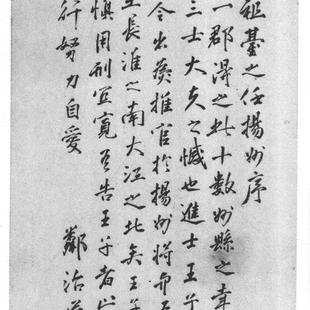 祖臺之任揚州序
一郡得之於十數州縣之幸
三士大夫之憾也進士王子
令出為推官於揚州將而
長淮之南大江之北矣王子
慎用刑宜寬吾告王子者止
行努力自愛
鄰治